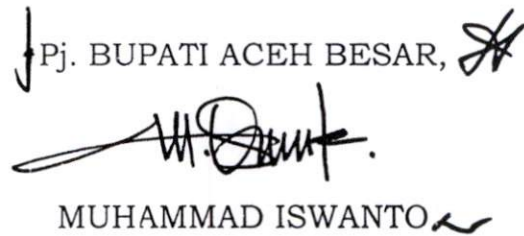 Pj. BUPATI ACEH BESAR,
MUHAMMAD ISWANTO